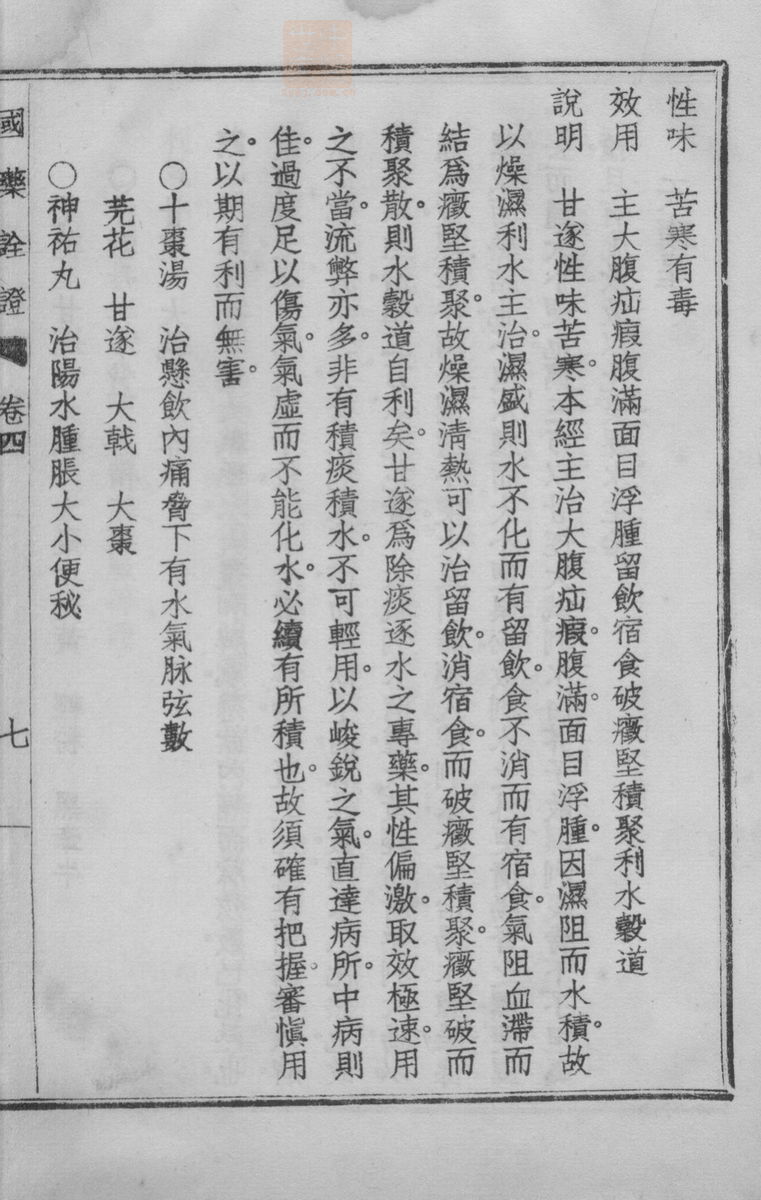 性味　苦寒有毒
效用　主大腹疝瘕腹滿面目浮腫留飲宿食破癥堅積聚利水穀道
說明　甘遂性味苦寒。本經主治大腹疝瘕。腹滿。面目浮腫。因濕阻而水積。故
以燥濕利水主治。濕盛則水不化而有留飲。食不消而有宿食。氣阻血滯而
結爲癥堅積聚。故燥濕淸熱可以治留飲。消宿食。而破癥堅積聚。癥堅破而
積聚散。則水穀道自利矣。甘遂爲除痰逐水之專藥。其性偏激。取效極速。用
之不當。流弊亦多。非有積痰積水。不可輕用。以峻銳之氣。直達病所。中病則
佳。過度足以傷氣。氣虛而不能化水。必續有所積也。故須確有把握。審愼用
之。以期有利而無害。
〇十棗湯　治懸飲內痛脅下有水氣脉弦數
芫花　甘遂　大戟　大棗
〇神祐丸　治陽水腫脹大小便秘
國藥詮證　卷四　七